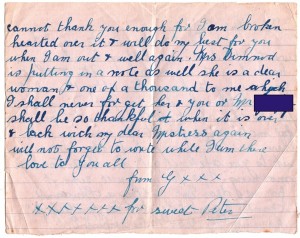 cannot thank you enough for I am broken
hearted over it & will do my best for you
when I am out & well again. Mrs Dimmod
is putting in a note as well she is a dear
woman & one of a thousand to me which
I shall never forget, her & you or Mr
shall be so thankful when it is over
& back with my dear Mistress again
will not forget to write while I am there
love to you all
from G x x x
x x x x x x x for sweet Peter